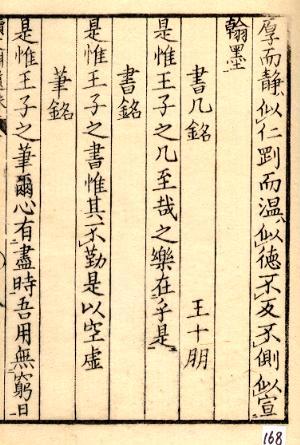 厚而静似仁剛而温似徳不反不側似宣
翰墨
書几銘 王十朋
是惟王子之几至哉之樂在乎是
書銘
是惟王子之書惟其不勤是以空虚
筆銘
是惟王子之筆爾心有盡時吾用無窮日
168